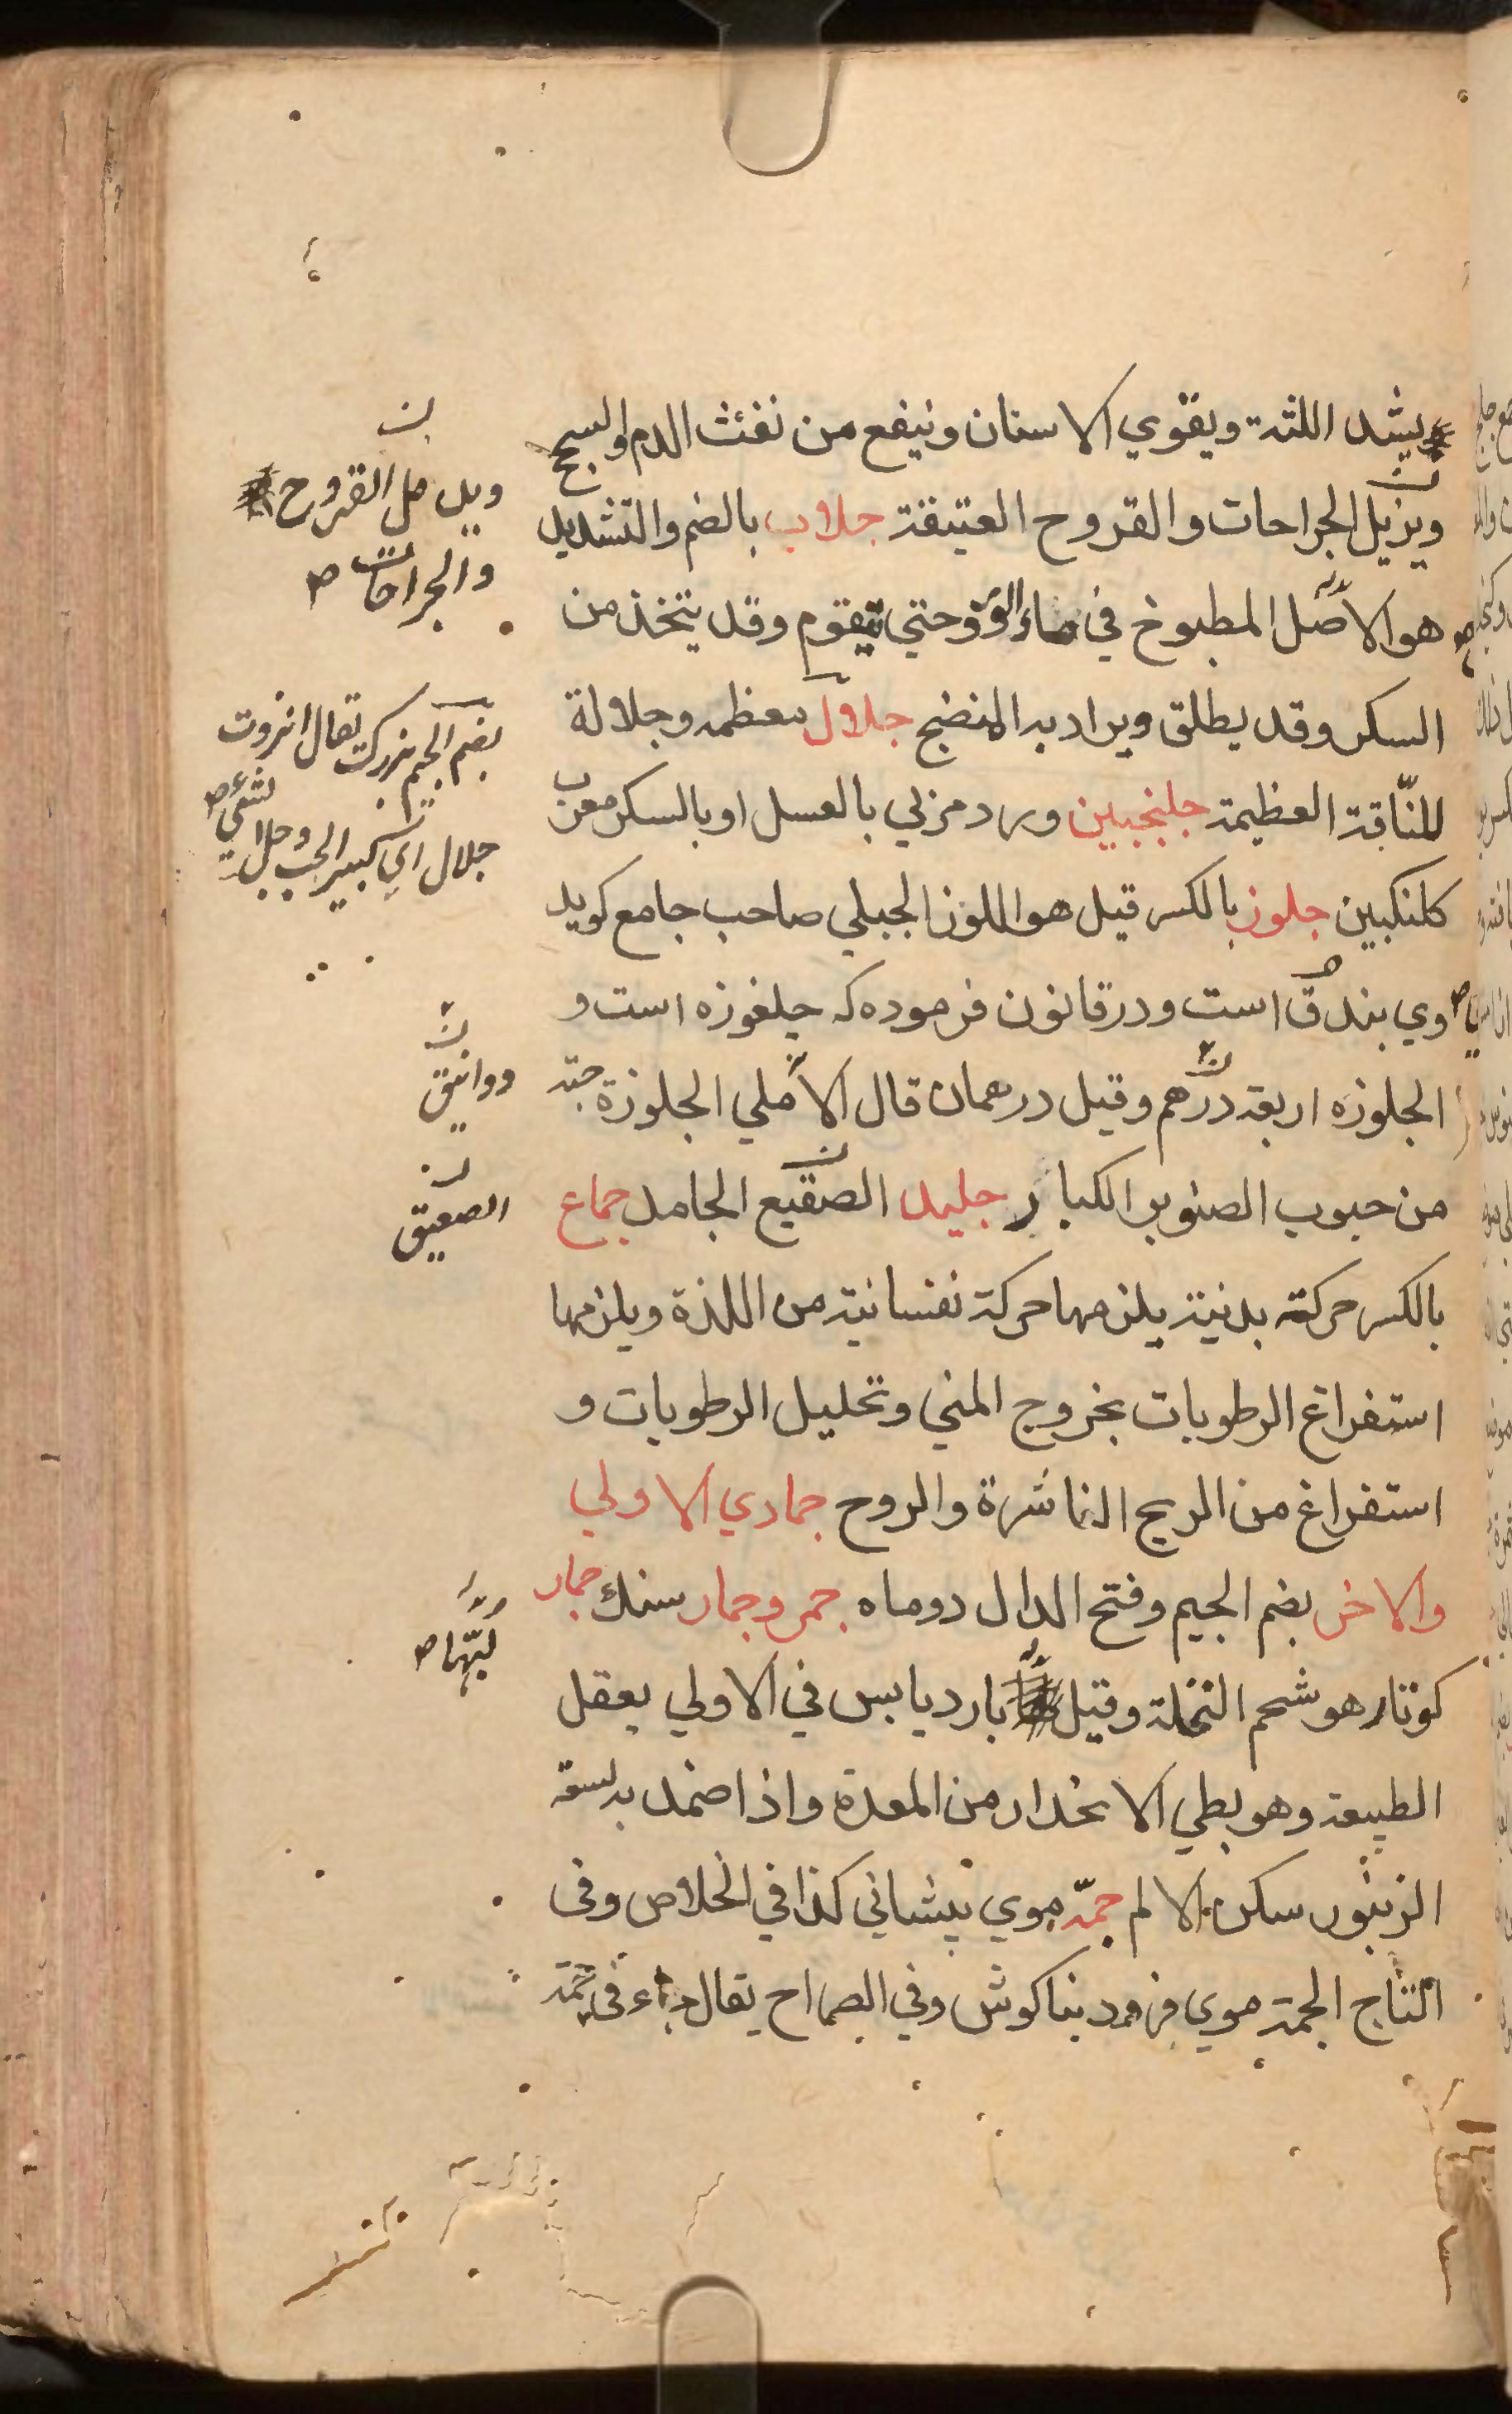 يشد اللثة ويقوي الاسنان وينفع من نفث الدم والسحج
ويزيل الجراحات والقروح العتيقة جلاب بالضم والتشديد
هو الاصل المطبوخ في ماء حتي يتقوم وقد يتخذ من
السكر وقد يطلق ويراد به المنضج جلال معظمه وجلالة
للنّاقة العظيمة جلنجبين ورد مربي بالعسل او بالسكر معرب
كلنكبين جلوز بالكسر قيل هو اللوز الجبلي صاحب جامع كويد
وي بندق است ودر قانون فرموده كه جلغوزه است و
الجلوزه اربعة درهم وقيل درهمان قال الآملي الجلوزة حبّه
من حبوب الصنوبر الكبار جليد الصقيع الجامد جماع
بالكسر حركة بدنية يلزمها حركة نفسانية من اللذة ويلزمها
استفراغ الرطوبات بخروج المني وتحليل الرطوبات و
استفراغ من الريح الناشرة والروح جمادي الاولي
والاخر بضم الجيم وفتح الدال دوماه جمر وجمار سنك جمار
هو شحم النخلة وقيل بارد يابس في الاولي يعقل
الطبيعة وهو بطي الانحدار من المعدة واذا ضمد به لسعة
الزنبور سكن الالم جمّه موي پيشاني كذا في الخلاص وفي
التاج الجمة موي فرود بناكوش وفي الصحاح يقال جاء في جمّة
ن
ويدمل القروح
والجراحات صح
بضم الجيم بزرك يقال انزروت
جلال اي كبير الحب
ن
دوانيق
ن
الصعيق
لبّها صح